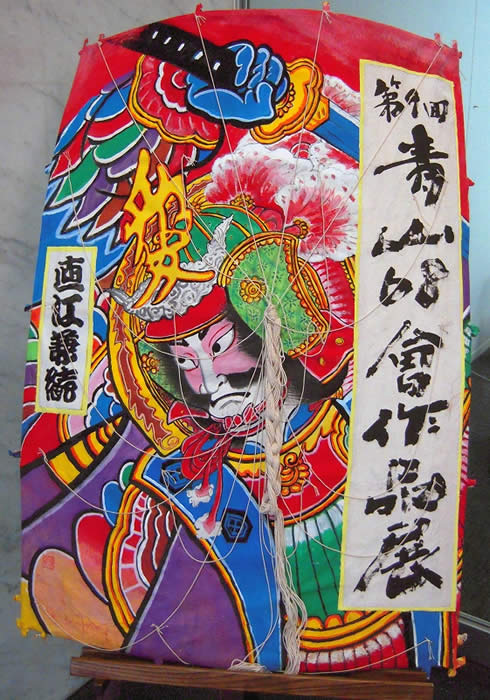 第回
青山會作品展
直江兼続
愛